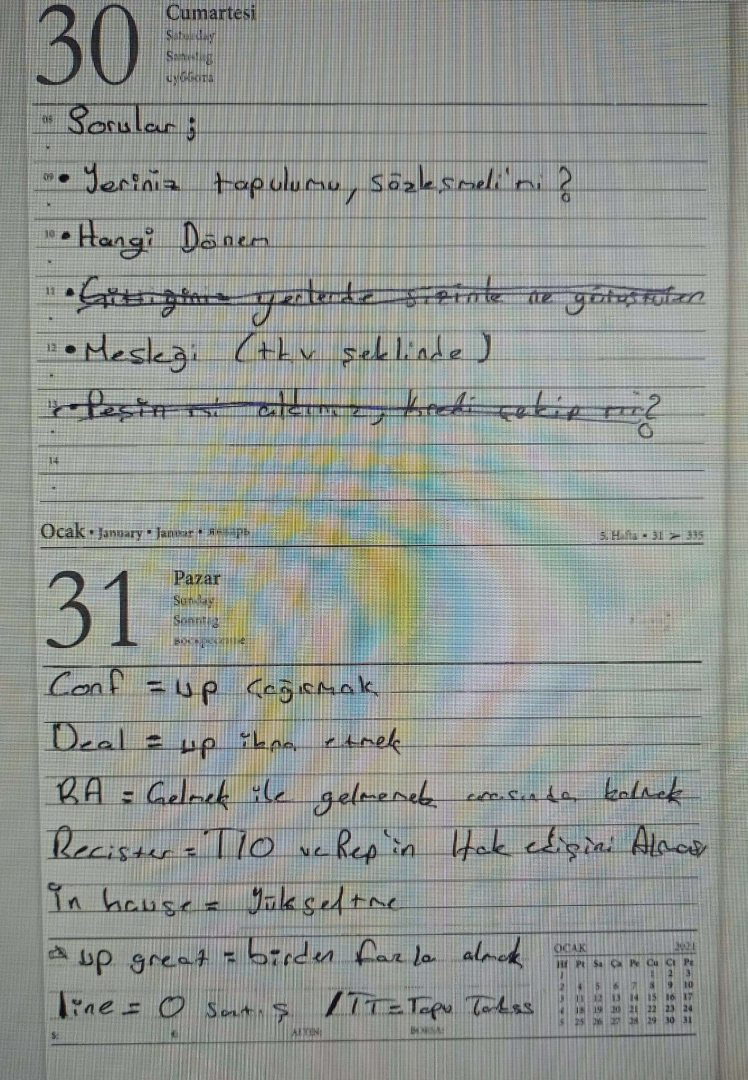 30 Cumartesi
Saturday
Samstag
суббота
08 Sorular ;
09 • Yeriniz tapulumu, sözleşmeli'mi ?
10 • Hangi Dönem
11 • Gittiğiniz yerlerde sizinle ne görüştüler
12 • Mesleği (tkv şeklinde)
13 • Peşin mi aldınız, kredi çekip mi?
14
Ocak • January • Januar • Январь 5. Hafta • 31 ➢ 335
31 Pazar
Sunday
Sonntag
воскресенье
Conf = up çağırmak
Deal = up ikna etmek
BA = Gelmek ile gelmemek arasında kalmak
Recister = T/O ve Rep'in Hak edişini Alması
İn hause = Yükseltme
up great = birden fazla almak
line = 0 Satış / TT = Tapu
OCAK 2021
Hf Pt Sa Ça Pe Cu Ct Pz
1 1 2 3
2 4 5 6 7 8 9 10
3 11 12 13 14 15 16 17
4 18 19 20 21 22 23 24
5 25 26 27 28 29 30 31
$: €: ALTIN: BORSA: